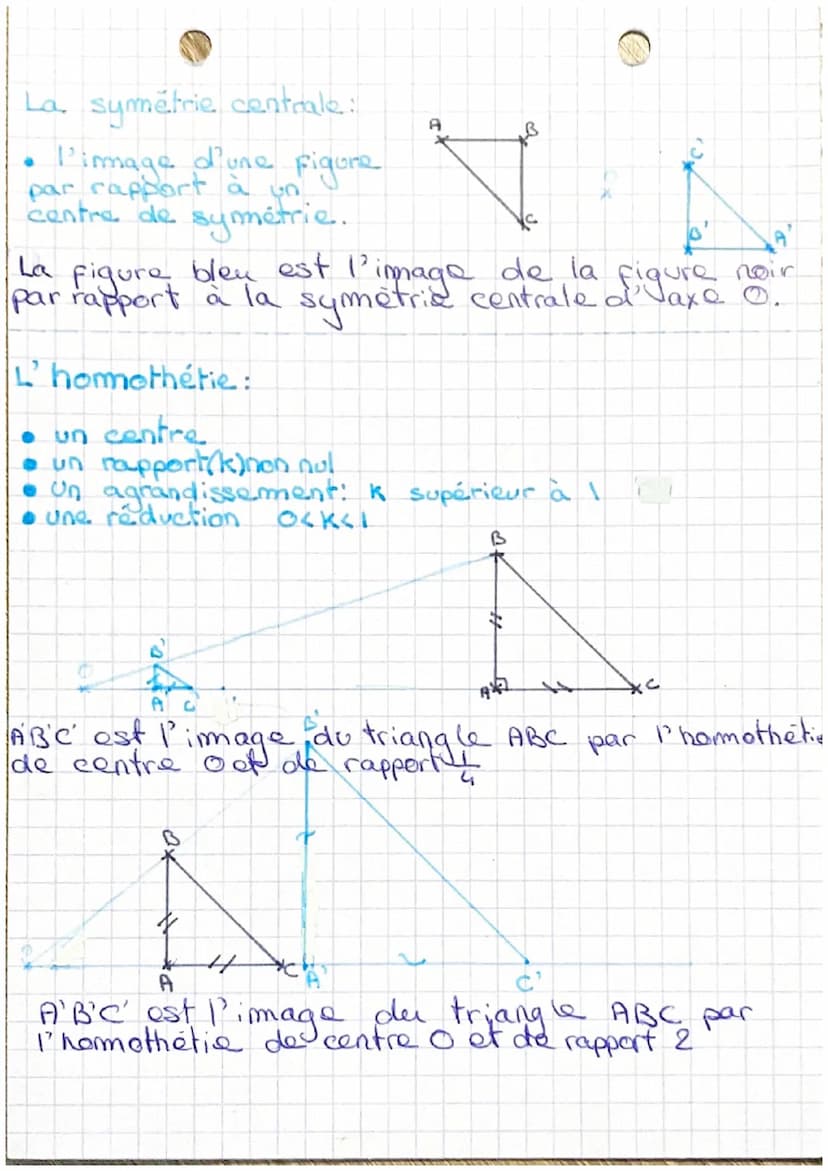 La symétrie centrale:
• l'image d'une figure
par rapport à un
centre de symétrie.
A
B
C
O
C'
B'
A'
La figure bleu est l'image de la figure noir
par rapport à la symétrie centrale d'axe O.
L'homothétie:
• un centre
• un rapport(k)non nul
• Un agrandissement: K supérieur à 1
• une réduction 0<K<1
B
O
B'
A'
C'
A
C
A'B'C' est l'image du triangle ABC par l'homothétie
de centre O et de rapport 1/4
B'
B
O
A
C
A'
C'
A'B'C' est l'image du triangle ABC par
l'homothétie de centre O et de rapport 2